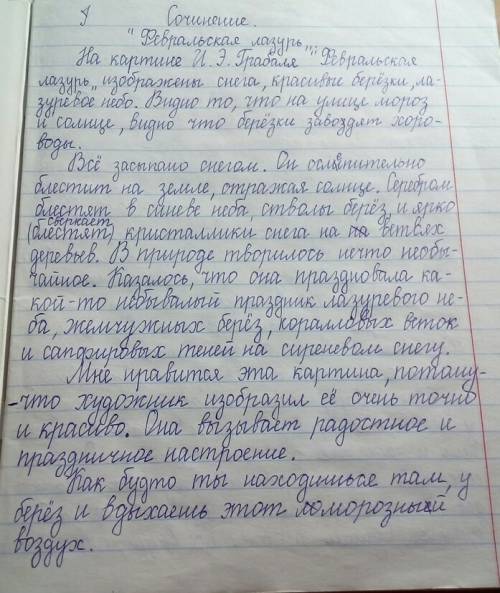 Сочинение.
"Февральская лазурь".
На картине И. Э. Грабаля "Февральская
лазурь" изображены снега, красивые берёзки, ла-
зуревое небо. Видно то, что на улице мороз
и солнце, видно что берёзки завоздят хоро-
воды.
Всё засыпано снегом. Он ослепительно
блестит на земле, отражая солнце. Серебром
блестят в синеве неба, стволы берёз, и ярко
сверкает
(блестят) кристаллики снега на на ветвях
деревьев. В природе творилось нечто необы-
чайное. Казалось, что она праздновала ка-
кой-то небывалый праздник лазуревого не-
ба, жемчужных берёз, коралловых веток
и сапфировых теней на сиреневом снегу.
Мне нравится эта картина, потому-
-что художник изобразил её очень точно
и красиво. Она вызывает радостное и
праздничное настроение.
Как будто ты находишься там, у
берёз и вдыхаешь этот ломорозный
воздух.